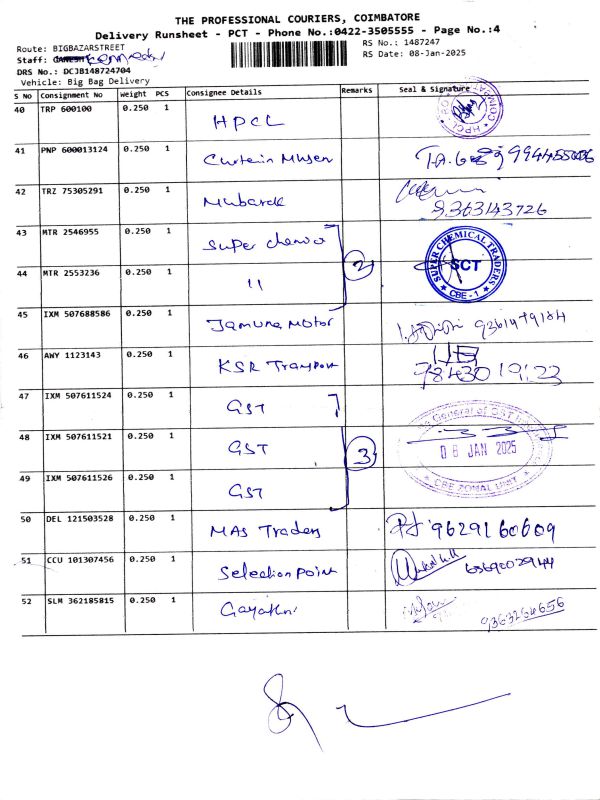 THE PROFESSIONAL COURIERS, COIMBATORE
Delivery Runsheet - PCT - Phone No.:0422-3505555 - Page No.:4
Route: BIGBAZARSTREET RS No.: 1487247
Staff: RS Date: 08-Jan-2025
DRS No.: DCJB148724704
Vehicle: Big Bag Delivery
S No Consignment No Weight PCS Consignee Details Remarks Seal & Signature
40 TRP 600100 0.250 1 HPCL
41 PNP 600013124 0.250 1 Curtain
42 TRZ 75305291 0.250 1 Mubarak
9363143726
43 MTR 2546955 0.250 1 Super
2
SUPER CHEMICAL TRADERS
SCT
CBE - 1
44 MTR 2553236 0.250 1 11
45 IXM 507688586 0.250 1 Jamuna Motor
46 AWY 1123143 0.250 1 KSR Transport
78430 19123
47 IXM 507611524 0.250 1 GST
48 IXM 507611521 0.250 1 GST 3
General of GST
08 JAN 2025
CBE ZONAL UNIT
49 IXM 507611526 0.250 1 GST
50 DEL 121503528 0.250 1 MAS Traders 9629160609
51 CCU 101307456 0.250 1 Selection point
52 SLM 362185815 0.250 1 Gayathri 9363264656